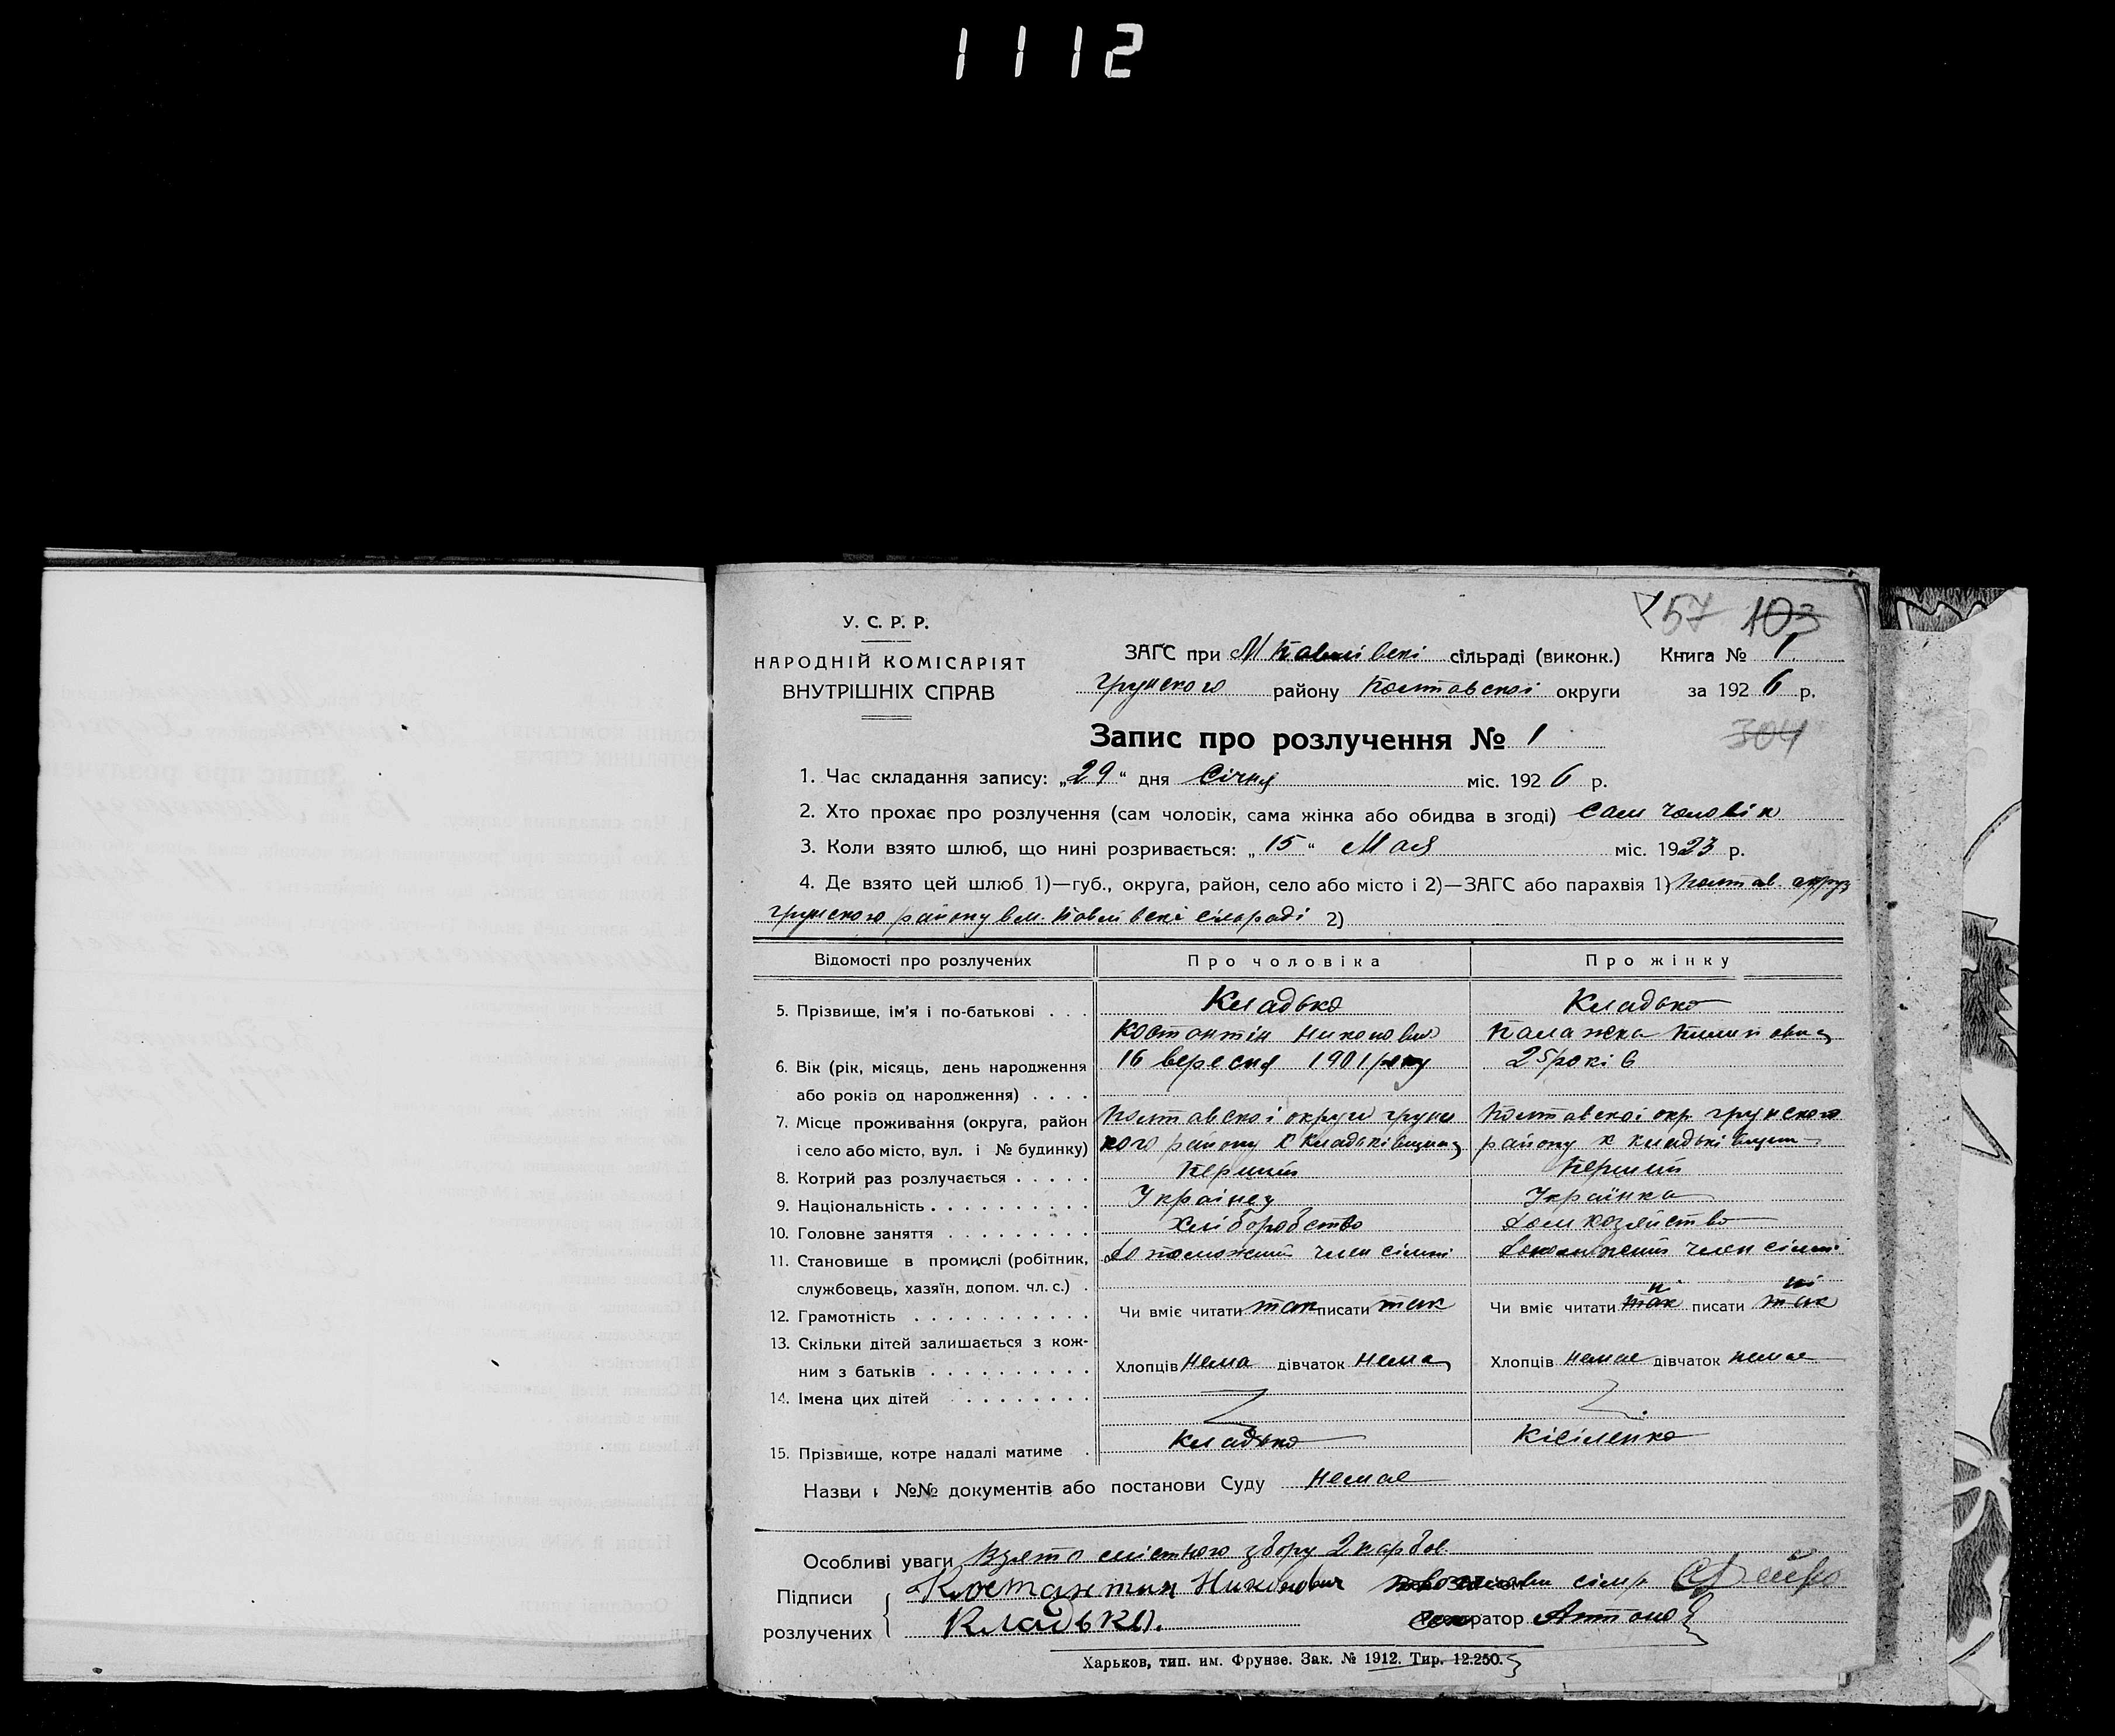 1112
57 103
У. С. Р. Р.
НАРОДНІЙ КОМІСАРІЯТ
ВНУТРІШНІХ СПРАВ
ЗАГС при М Павлівскі сільраді (виконк.) Книга № 1
Грунского району Полтавскоі округи за 1926 р.
Запис про розлучення № 1
304
1. Час складання запису: „29“ дня Січня міс. 1926 р.
2. Хто прохає про розлучення (сам чоловік, сама жінка або обидва в згоді) сам чоловік
3. Коли взято шлюб, що нині розривається: „15“ Мая міс. 1923 р.
4. Де взято цей шлюб 1)—губ., округа, район, село або місто і 2)—ЗАГС або парахвія 1) Полтав. округ
Грунского району в м. Павлівскі сільраді 2)
Відомості про розлучених Про чоловіка Про жінку
5. Прізвище, ім'я і по-батькові . . . Кладько Кладько
Костантін Никонович Палажка Пилиповна
6. Вік (рік, місяць, день народження 16 вересня 1901 року 25 років
або років од народження) . . . .
7. Місце проживання (округа, район Полтавскоі округи грунс Полтавскоі окр. грунского
і село або місто, вул. і № будинку) кого району х Кладьківщина району х Кладьківщина
8. Котрий раз розлучається . . . . . Перший Перший
9. Національність . . . . . . . . . . Украінец Українка
10. Головне заняття . . . . . . . . . Хліборобство Домхозяйство
11. Становище в промислі (робітник, Допоможний член сімні Допоможний член сімні
службовець, хазяїн, допом. чл. с.) .
12. Грамотність . . . . . . . . . . . Чи вміє читати так писати так Чи вміє читати так ні писати так ні
13. Скільки дітей залишається з кож-
ним з батьків . . . . . . . . . . Хлопців Нема дівчаток Нема Хлопців немає дівчаток немає
14. Імена цих дітей . . . . . . . .
15. Прізвище, котре надалі матиме . Кладько Кісіленко
Назви і №№ документів або постанови Суду Немає
Особливі уваги Взято містного збору 2 карбов
Підписи Костантин Никонович
розлучених Кладько.
Харьков, тип. им. Фрунзе. Зак. № 1912. Тир. 12.250.